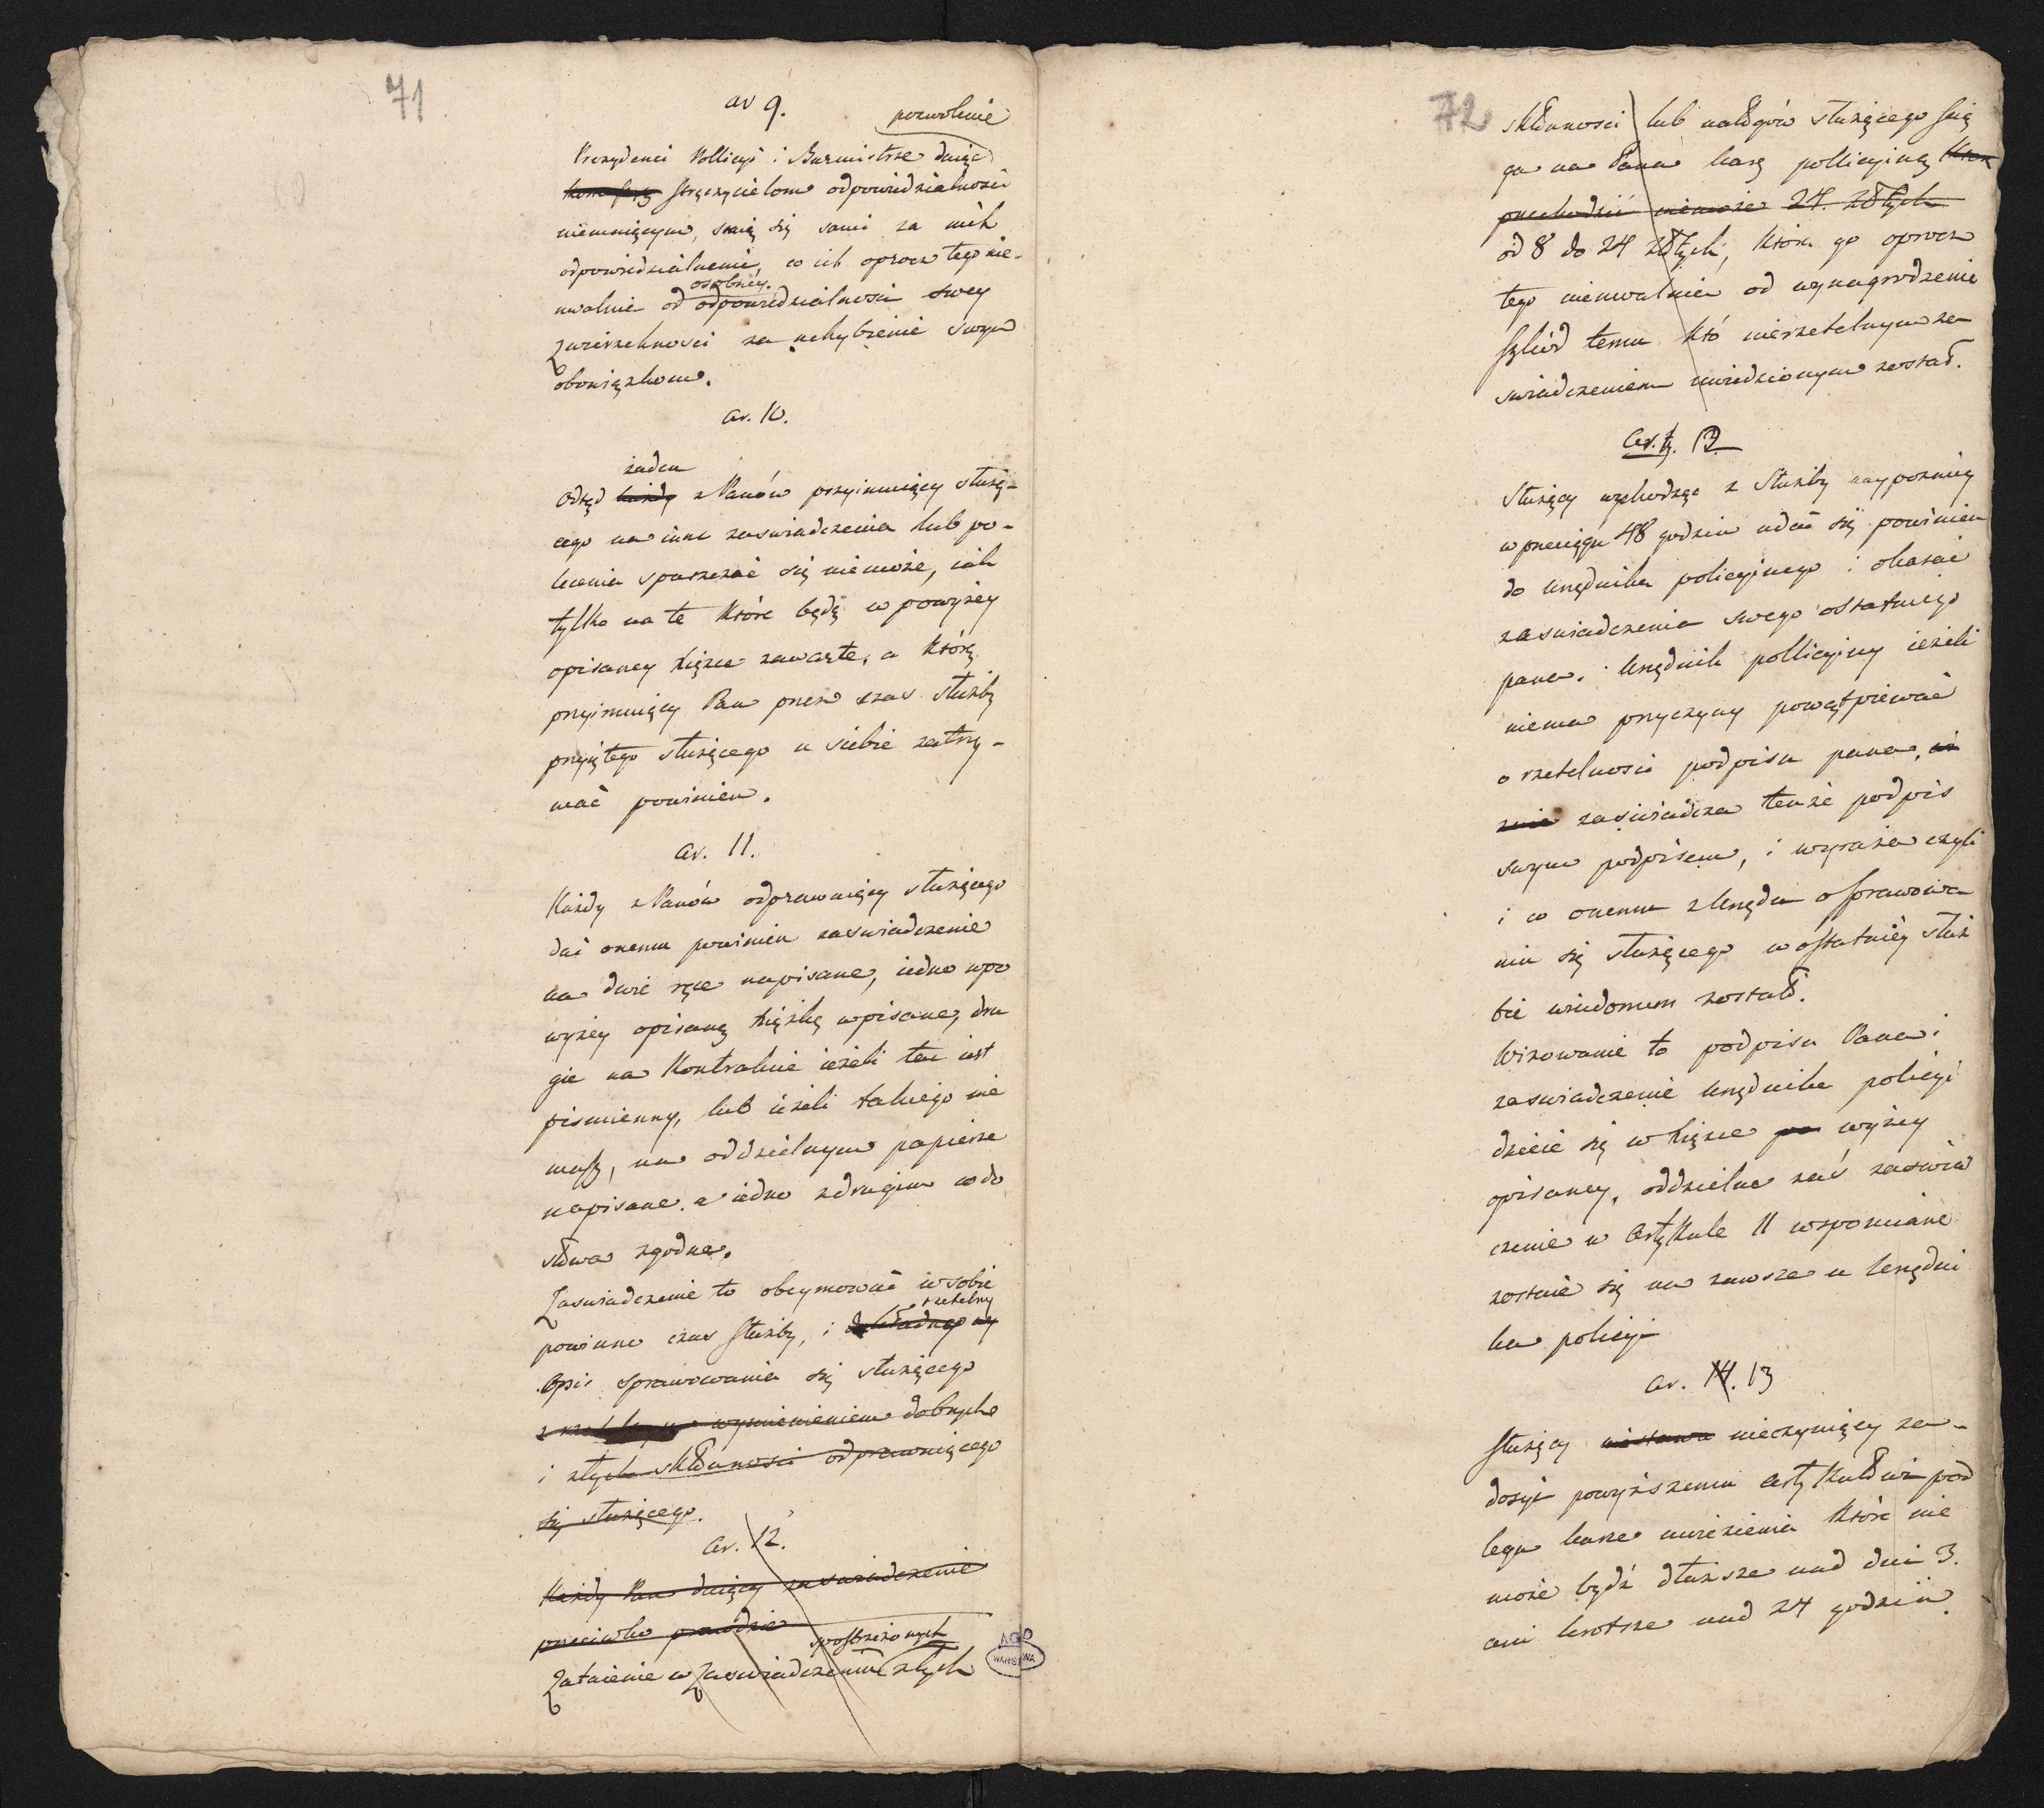 71
ar 9.
pozwolenie
Prezydenci Pollicyi i Burmistrze daiąc
stręczycielom odpowiedzialności
niemaiącym, staią się sami za nich
odpowiedzialnemi, co ich oprocz tego nie-
osobney.
uwalnia od odpowiedzialności swey
Zwierzchności za uchybienie swym
obowiązkom.
ar. 10.
żaden
Odtąd każdy z Panów przyimuiący służą-
cego na inne zaswiadczenia lub po-
lecenia spuszczać się niemoże, iak
tylko na te które będą w powyżey
opisaney xiążce zawarte, a którą
przyimuiący Pan przez czas służby
przyiętego służącego u siebie zatrzy-
mać powinien.
ar. 11.
Każdy z Panów odprawuiący służącego
dać onemu powinien zaswiadczenie
na dwie ręce napisane, iedno w po
wyżey opisaną xiążkę wpisane, dru
gie na Kontrakcie ieżeli ten iest
pismienny, lub ieżeli takiego nie
masz, na oddzielnym papierze
napisane. a iedno z drugim co do
słowa zgodne.
Zaswiadczenie to obeymować w sobie
rzetelny
powinno czas służby, i dokładny
opis sprawowania się służącego
wymienieniem dobrych
i złych skłonności odprawuiącego
się służącego.
Ar. 12.
Każdy Pan daiący zaswiadczenie
przeciwko prawdzie
spostrzeżonych
Zataienie w Zaswiadczeniu złych
AGAD
WARSZAWA
72
skłonności lub nałogów służącego ścią
ga na Pana karę pollicyiną która
przechodzić niemoże 24. złtych
od 8 do 24 złtych, która go oprocz
tego nieuwalnia od wynagrodzenia
szkód temu kto nierzetelnym za
swiadczeniem uwiedzionym został.
Art. 13.
Służący wychodząc z Służby naypozniey
w przeciągu 48 godzin udać się powinien
do Urzędnika policyinego i okazać
zaswiadczenia swego ostatniego
pana. Urzędnik pollicyiny ieżeli
niema przyczyny powątpiewać
o rzetelności podpisu pana,
zaświadcza tenże podpis
swym podpisem, i wyraża czyli
i co onemu z Urzędu o sprawowa
niu się służącego w ostatniey służ
bie wiadomem zostało.
Wizowanie to podpisu Pana i
zaswiadczenie Urzędnika policyi
dzieie się w xiążce po wyżey
opisaney, oddzielne zaś zaswia
czenie w Artykule 11 wspomniane
zostaie się na zawsze u Urzędni
ka policyi
ar. 14. 13
Służący nieczyniący za-
dosyć powyższemu Artykułowi pod
lega karze więzienia które nie
może bydź dłuższe nad dni 3.
ani krotsze nad 24 godzin.